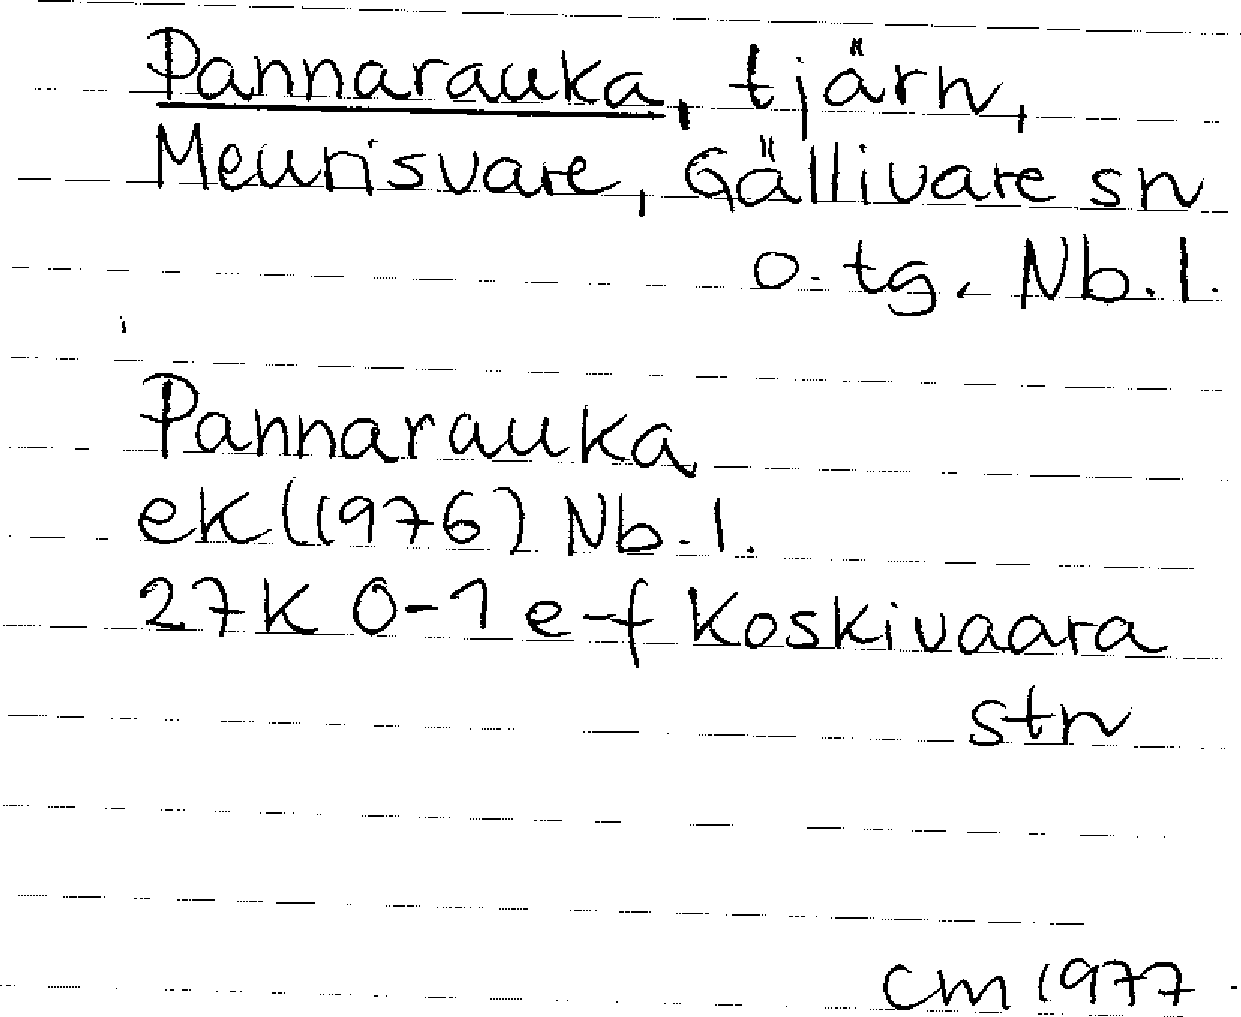 Pannarauka, tjärn,
Meurisvare, Gällivare sn
o. tg. Nb.l.
Pannarauka
ek (1976) Nb.l.
27K 0-1 e-f Koskivaara
stn
CM 1977.